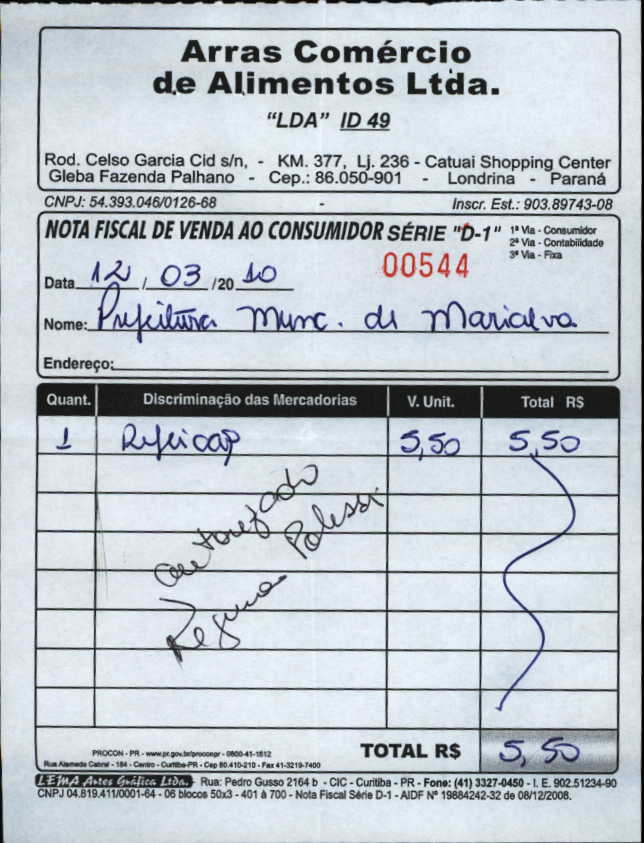 Arras Comércio
de Alimentos Ltda.
"LDA" ID 49
Rod. Celso Garcia Cid s/n, - KM. 377, Lj. 236 - Catuai Shopping Center
Gleba Fazenda Palhano - Cep.: 86.050-901 - Londrina - Paraná
CNPJ: 54.393.046/0126-68 - Inscr. Est.: 903.89743-08
NOTA FISCAL DE VENDA AO CONSUMIDOR SÉRIE "D-1"
1ª Via - Consumidor
2ª Via - Contabilidade
3ª Via - Fixa
00544
Data 12 / 03 /20 10
Nome: Prefeitura Munc. de Marialva
Endereço:
Quant. Discriminação das Mercadorias V. Unit. Total R$
1 Refeicao 5,50 5,50
autorizado
Regina
PROCON - PR - www.pr.gov.br/proconpr - 0800-41-1512
Rua Alameda Cabral - 184 - Centro - Curitiba-PR - Cep 80.410-210 - Fax 41-3219-7400
TOTAL R$ 5,50
LEMA Artes Gráfica Ltda. Rua: Pedro Gusso 2164 b - CIC - Curitiba - PR - Fone: (41) 3327-0450 - I. E. 902.51234-90
CNPJ 04.819.411/0001-64 - 06 blocos 50x3 - 401 à 700 - Nota Fiscal Série D-1 - AIDF Nº 19884242-32 de 08/12/2008.